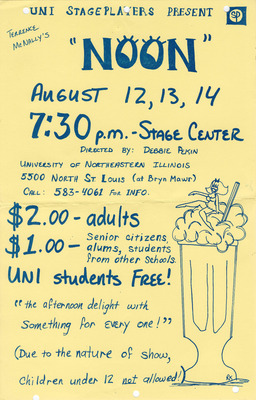 UNI STAGEPLAYERS PRESENT
TERRENCE
McNALLY'S
"NOON"
AUGUST 12, 13, 14
7:30 p.m. - STAGE CENTER
DIRECTED BY: DEBBIE PEKIN
UNIVERSITY OF NORTHEASTERN ILLINOIS
5500 NORTH ST LOUIS (at BRYN MAWR)
CALL: 583-4061 FOR INFO.
$2.00 - adults
$1.00 - Senior citizens,
alums, students
from other schools.
UNI students FREE!
"the afternoon delight with
Something for every one!"
(Due to the nature of show,
Children under 12 not allowed!)